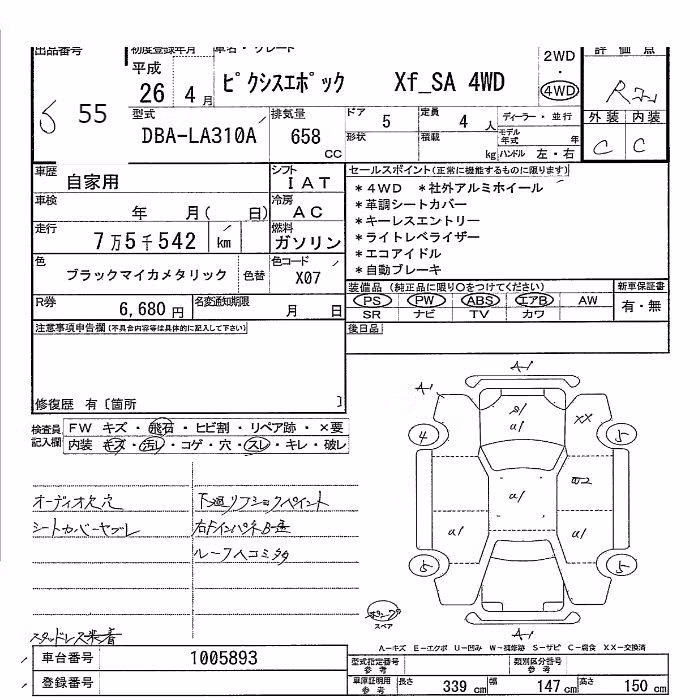 出品番号 初度登録年月 車名・グレード 2WD・4WD 評価点
55 平成26 4月 ピクシスエポック Xf_SA 4WD R
型式 DBA-LA310A 排気量 658 CC ドア 5 定員 4人 ディーラー・並行 外装 内装
形状 積載 kg モデル年式 年 ハンドル 左・右 C C
車歴 自家用 シフト IAT セールスポイント(正常に機能するものに限ります)
車検 年 月( 日) 冷房 AC *4WD *社外アルミホイール
*革調シートカバー
走行 7万5千542 km 燃料 ガソリン *キーレスエントリー
*ライトレベライザー
色 ブラックマイカメタリック 色替 色コード X07 *エコアイドル
*自動ブレーキ
装備品(純正品に限り○をつけてください) 新車保証書
R券 6,680円 名変通知期限 月 日 PS PW ABS エアB AW 有・無
SR ナビ TV カワ
注意事項申告欄(不具合内容等は具体的に記入して下さい) 後日品
修復歴 有〔箇所 〕
検査員記入欄 FW キズ・飛石・ヒビ割・リペア跡・×要
内装 キズ・汚レ・コゲ・穴・スレ・キレ・破レ
A-1
A-1
XX
a1
4 5
a1
a1 a1
5 5
A-1
オーディオ欠穴 下廻リフショクペイント
シートカバーヤブレ
ルーフヘコミ
スペア
スタッドレス装着
A-キズ E-エクボ U-凹み W-補修跡 S-サビ C-腐食 XX-交換済
車台番号 1005893 型式指定番号 参考 類別区分番号 参考
登録番号 車庫証明用 参考 長さ 339 cm 幅 147 cm 高さ 150 cm